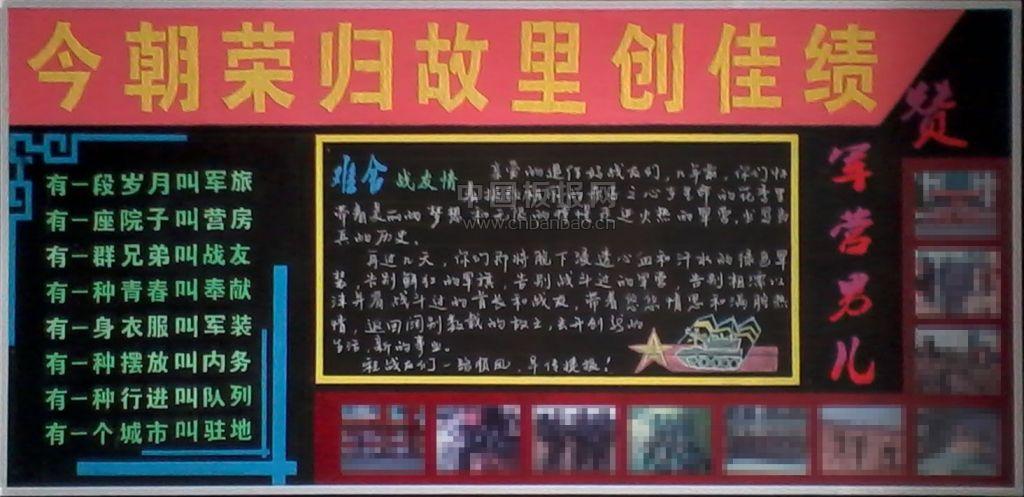 今朝荣归故里创佳绩
赞
军营男儿
有一段岁月叫军旅
有一座院子叫营房
有一群兄弟叫战友
有一种青春叫奉献
有一身衣服叫军装
有一种摆放叫内务
有一种行进叫队列
有一个城市叫驻地
难舍战友情
亲爱的退伍好战友们，几年前，你们怀
带着美丽的梦想和 火热的军营，书写
真的历史。
再过几天，你们即将脱下浸透心血和汗水的绿色军
装，告别鲜红的军旗，告别战斗过的军营 告别相濡以
沫并肩战斗过的首长和战友，带着悠悠情思和满腔热
情，返回阔别数载的故土，去开创新的
生活、新的事业。
祝战友们一路顺风，早传捷报！
中国板报网
www.cnbanbao.cn